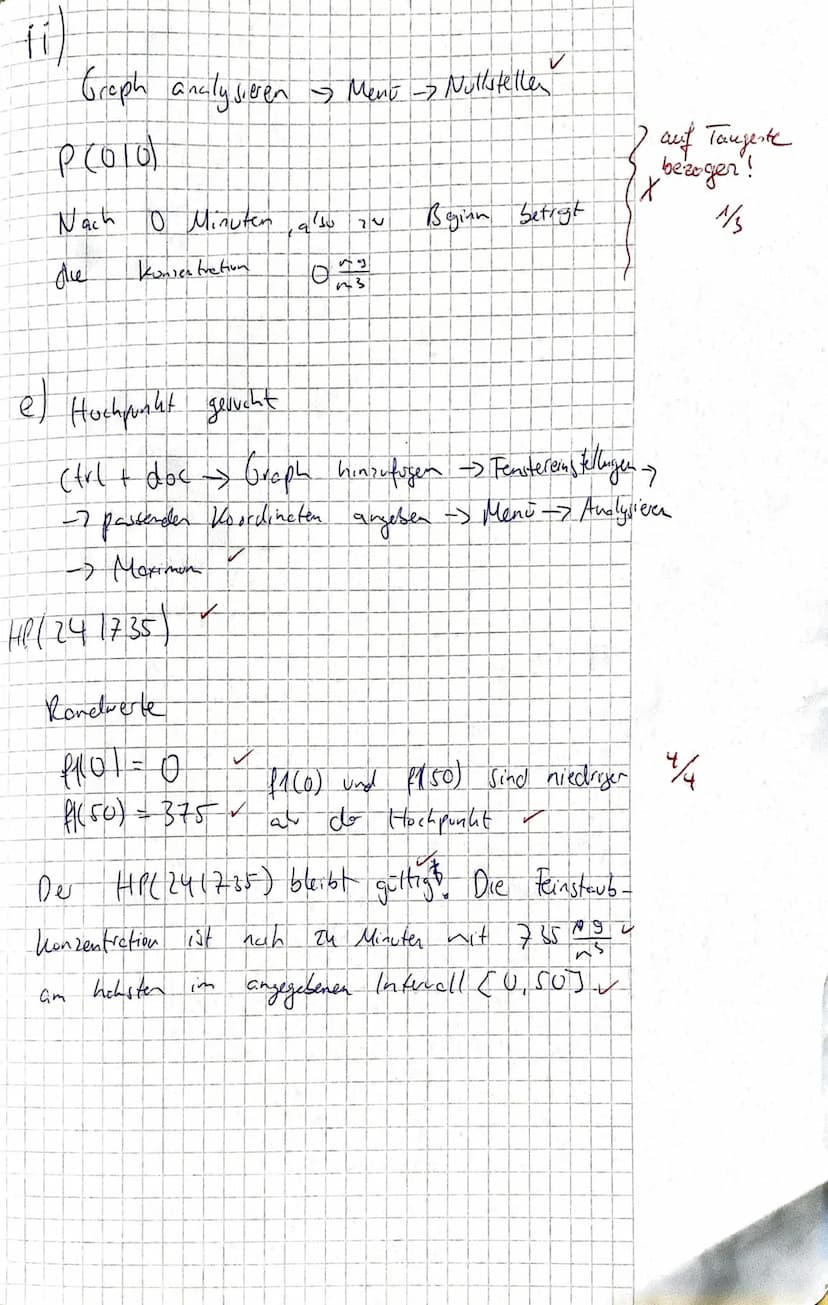 ii)
Graph analysieren → Menü → Nullstellen ✓
P(0|0)
auf Tangente
bezogen!
Nach 0 Minuten, also zu Beginn beträgt
1/3
die Konzentration 0
e) Hochpunkt gesucht
Ctrl + doc → Graph hinzufügen → Fenstereinstellungen →
→ passenden Koordinaten angeben → Menü → Analysieren
→ Maximum ✓
HP(24|735) ✓
Randwerte
f1(0) = 0 ✓ f1(0) und f1(50) sind niedriger
4/4
f1(50) = 375 ✓ als der Hochpunkt ✓
Der HP(24|735) bleibt gültig. Die Feinstaub-
konzentration ist nach 24 Minuten mit 735 ✓
am höchsten im angegebenen Intervall [0,50]. ✓